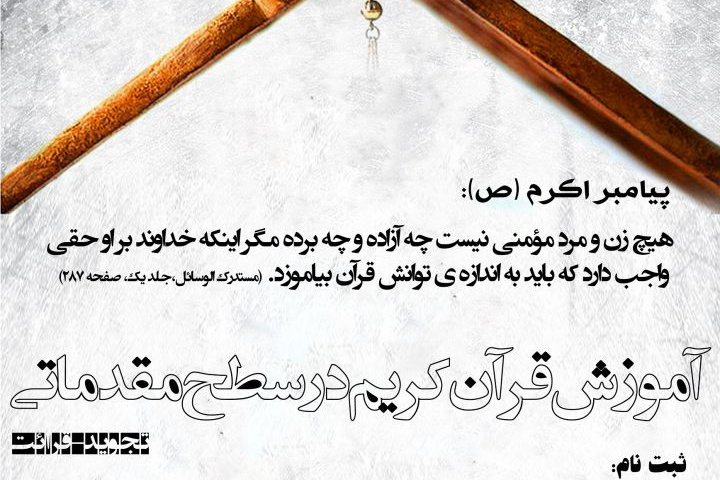 پیامبر اکرم (ص):
هیچ زن و مرد مؤمنی نیست چه آزاده و چه برده مگر اینکه خداوند بر او حقی
واجب دارد که باید به اندازه ی توانش قرآن بیاموزد. (مستدرک الوسائل،جلد یک، صفحه ۲۸۷)
آموزش قرآن کریم در سطح مقدماتی
تجوید-قرائت
ثبت نام: